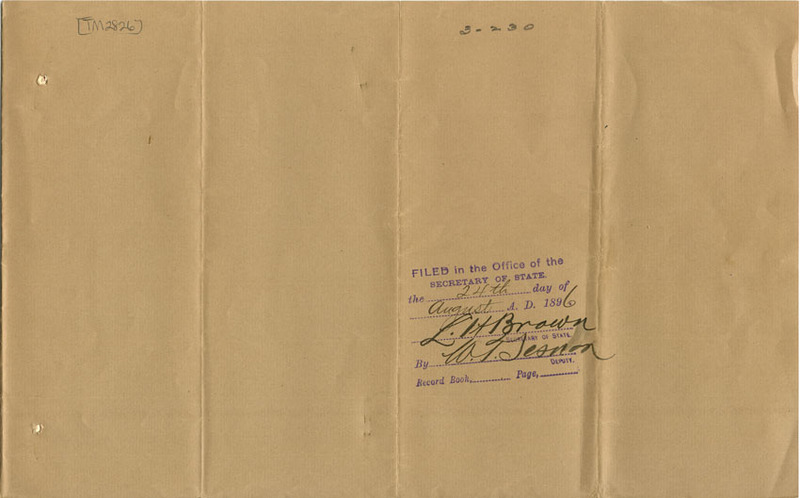 [TM2826]
3-230
FILED in the Office of the
SECRETARY OF STATE.
the 24th day of
August A. D. 1896
L. H Brown
SECRETARY OF STATE.
By W. T. Sesnon
DEPUTY.
Record Book, Page,